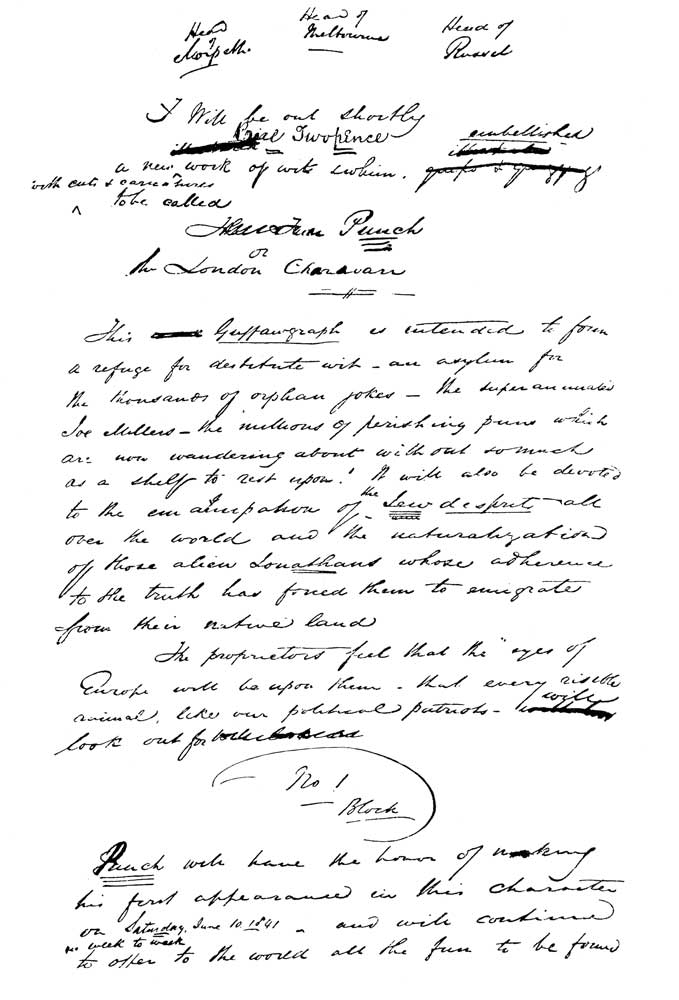 Head of Morpeth.
Head of Melbourne
Head of Russel
I Will be out shortly
Price Twopence embellished
a new work of wit & whim.
with cuts & caricatures
to be called
Punch
or
the London Charavari
This Guffawgraph is intended to form
a refuge for destitute wit – an asylum for
the thousands of orphan jokes – the superannuated
Joe Millers – the millions of perishing puns which
are now wandering about without so much
as a shelf to rest upon! It will also be devoted
to the emancipation of the Jew desprit all
over the world and the naturalization
of those alien Jonathans whose adherence
to the truth has forced them to emigrate
from their native land
The proprietors feel that the "eyes of
Europe will be upon them – that every risible
animal, like our political patriots – will
look out for
No 1
Block
Punch will have the honor of making
his first appearance in this character
on Saturday, June 10 1841 – and will continue
from week to week
to offer to the world all the fun to be found